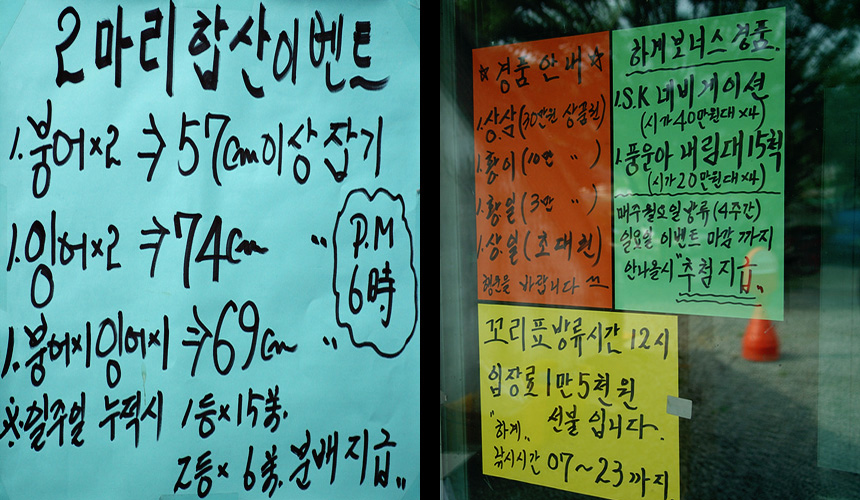 2마리 합산이벤트
1. 붕어×2 ⇒ 57cm이상 잡기
1. 잉어×2 ⇒ 74cm 〃
P.M
6時
1. 붕어×1 잉어×1 ⇒ 69cm 〃
※ 일주일 누적시 1등×15만.
2등×6만. 분배지급〃
☆ 경품 안내 ☆
1. 상상(30만원 상품권)
1. 황이(10만 〃 )
1. 황일(3만 〃 )
1. 상일(초대권)
행운을 바랍니다 ^^
하계보너스 경품.
1. S.K 네비게이션
(시가40만원대×4)
1. 풍운아 내림대 15척
(시가20만원대×4)
매주월요일 방류(4주간)
일요일 이벤트 마감 까지
안나올시 "추첨지급〃
꼬리표방류시간 12시
입장료 1만5천원
선불입니다.
"하계〃
낚시시간 07~23까지